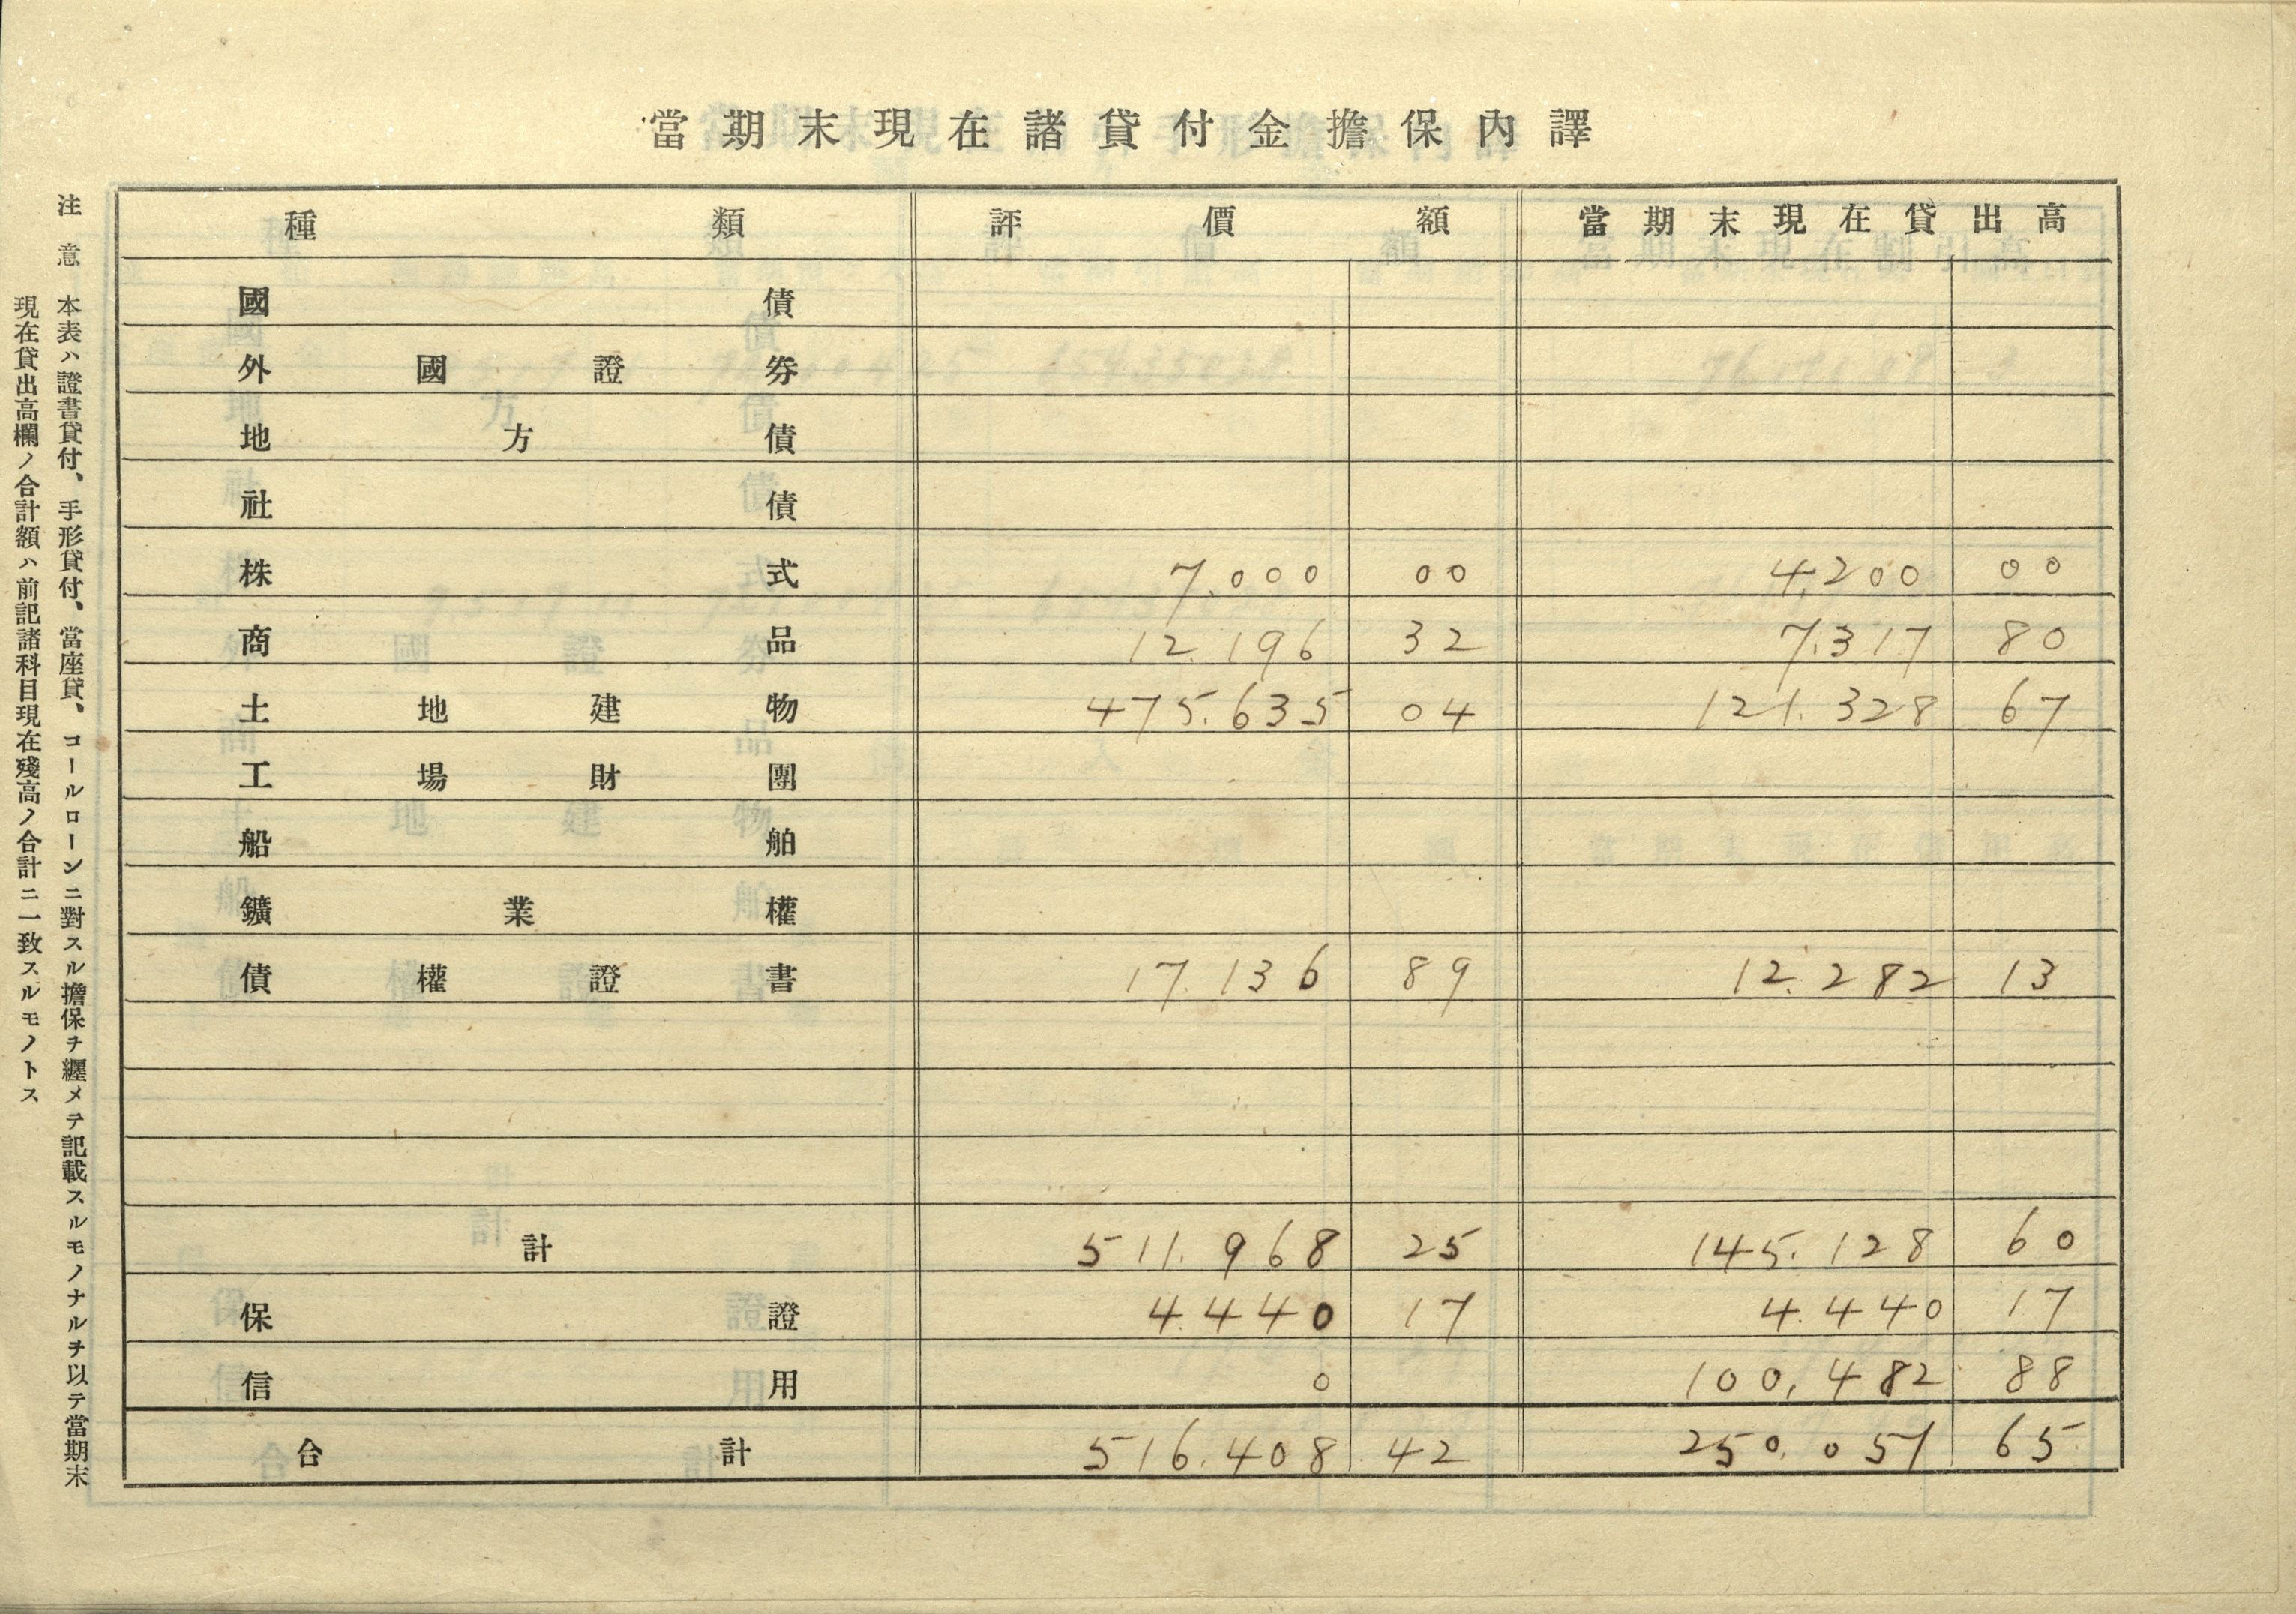 當期末現在諸貸付金擔保內譯
種類 評價額 當期末現在貸出高
國債
外國證券
地方債
社債
株式 7.000 00 4,200 00
商品 12.196 32 7.317 80
土地建物 475.635 04 121.328 67
工場財團
船舶
鑛業權
債權證書 17.136 89 12.282 13
計 511.968 25 145.128 60
保證 4.440 17 4.440 17
信用 0 100,482 88
合計 516.408 42 250.051 65
注意 本表ハ證書貸付、手形貸付、當座貸、コールローンニ對スル擔保ヲ纒メテ記載スルモノナルヲ以テ當期末
現在貸出高欄ノ合計額ハ前記諸科目現在殘高ノ合計ニ一致スルモノトス